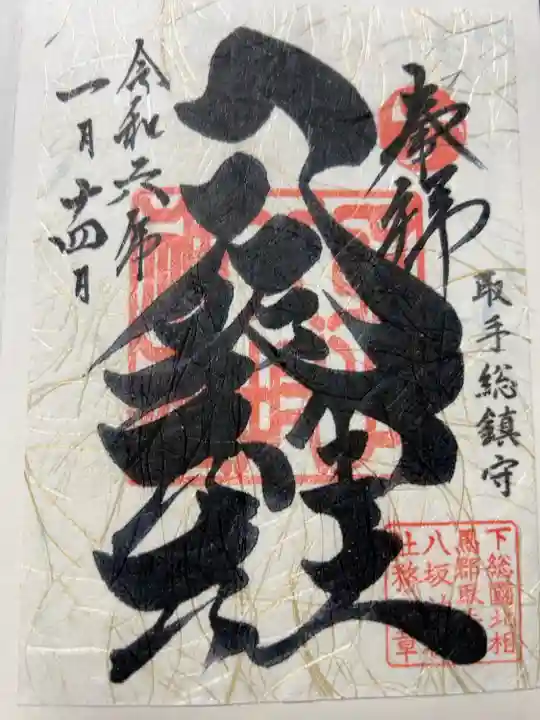 奉拝
取手総鎮守
八坂神社
令和六年
一月十四日
下総國北相
馬郡取手
八坂神社
社務所章